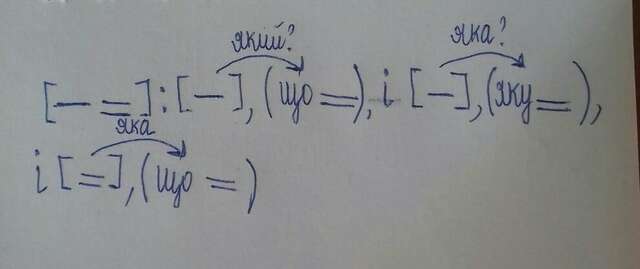 який? яка?
[— =] : [—], (що =), і [—], (яку =),
яка
і [=], (що =)